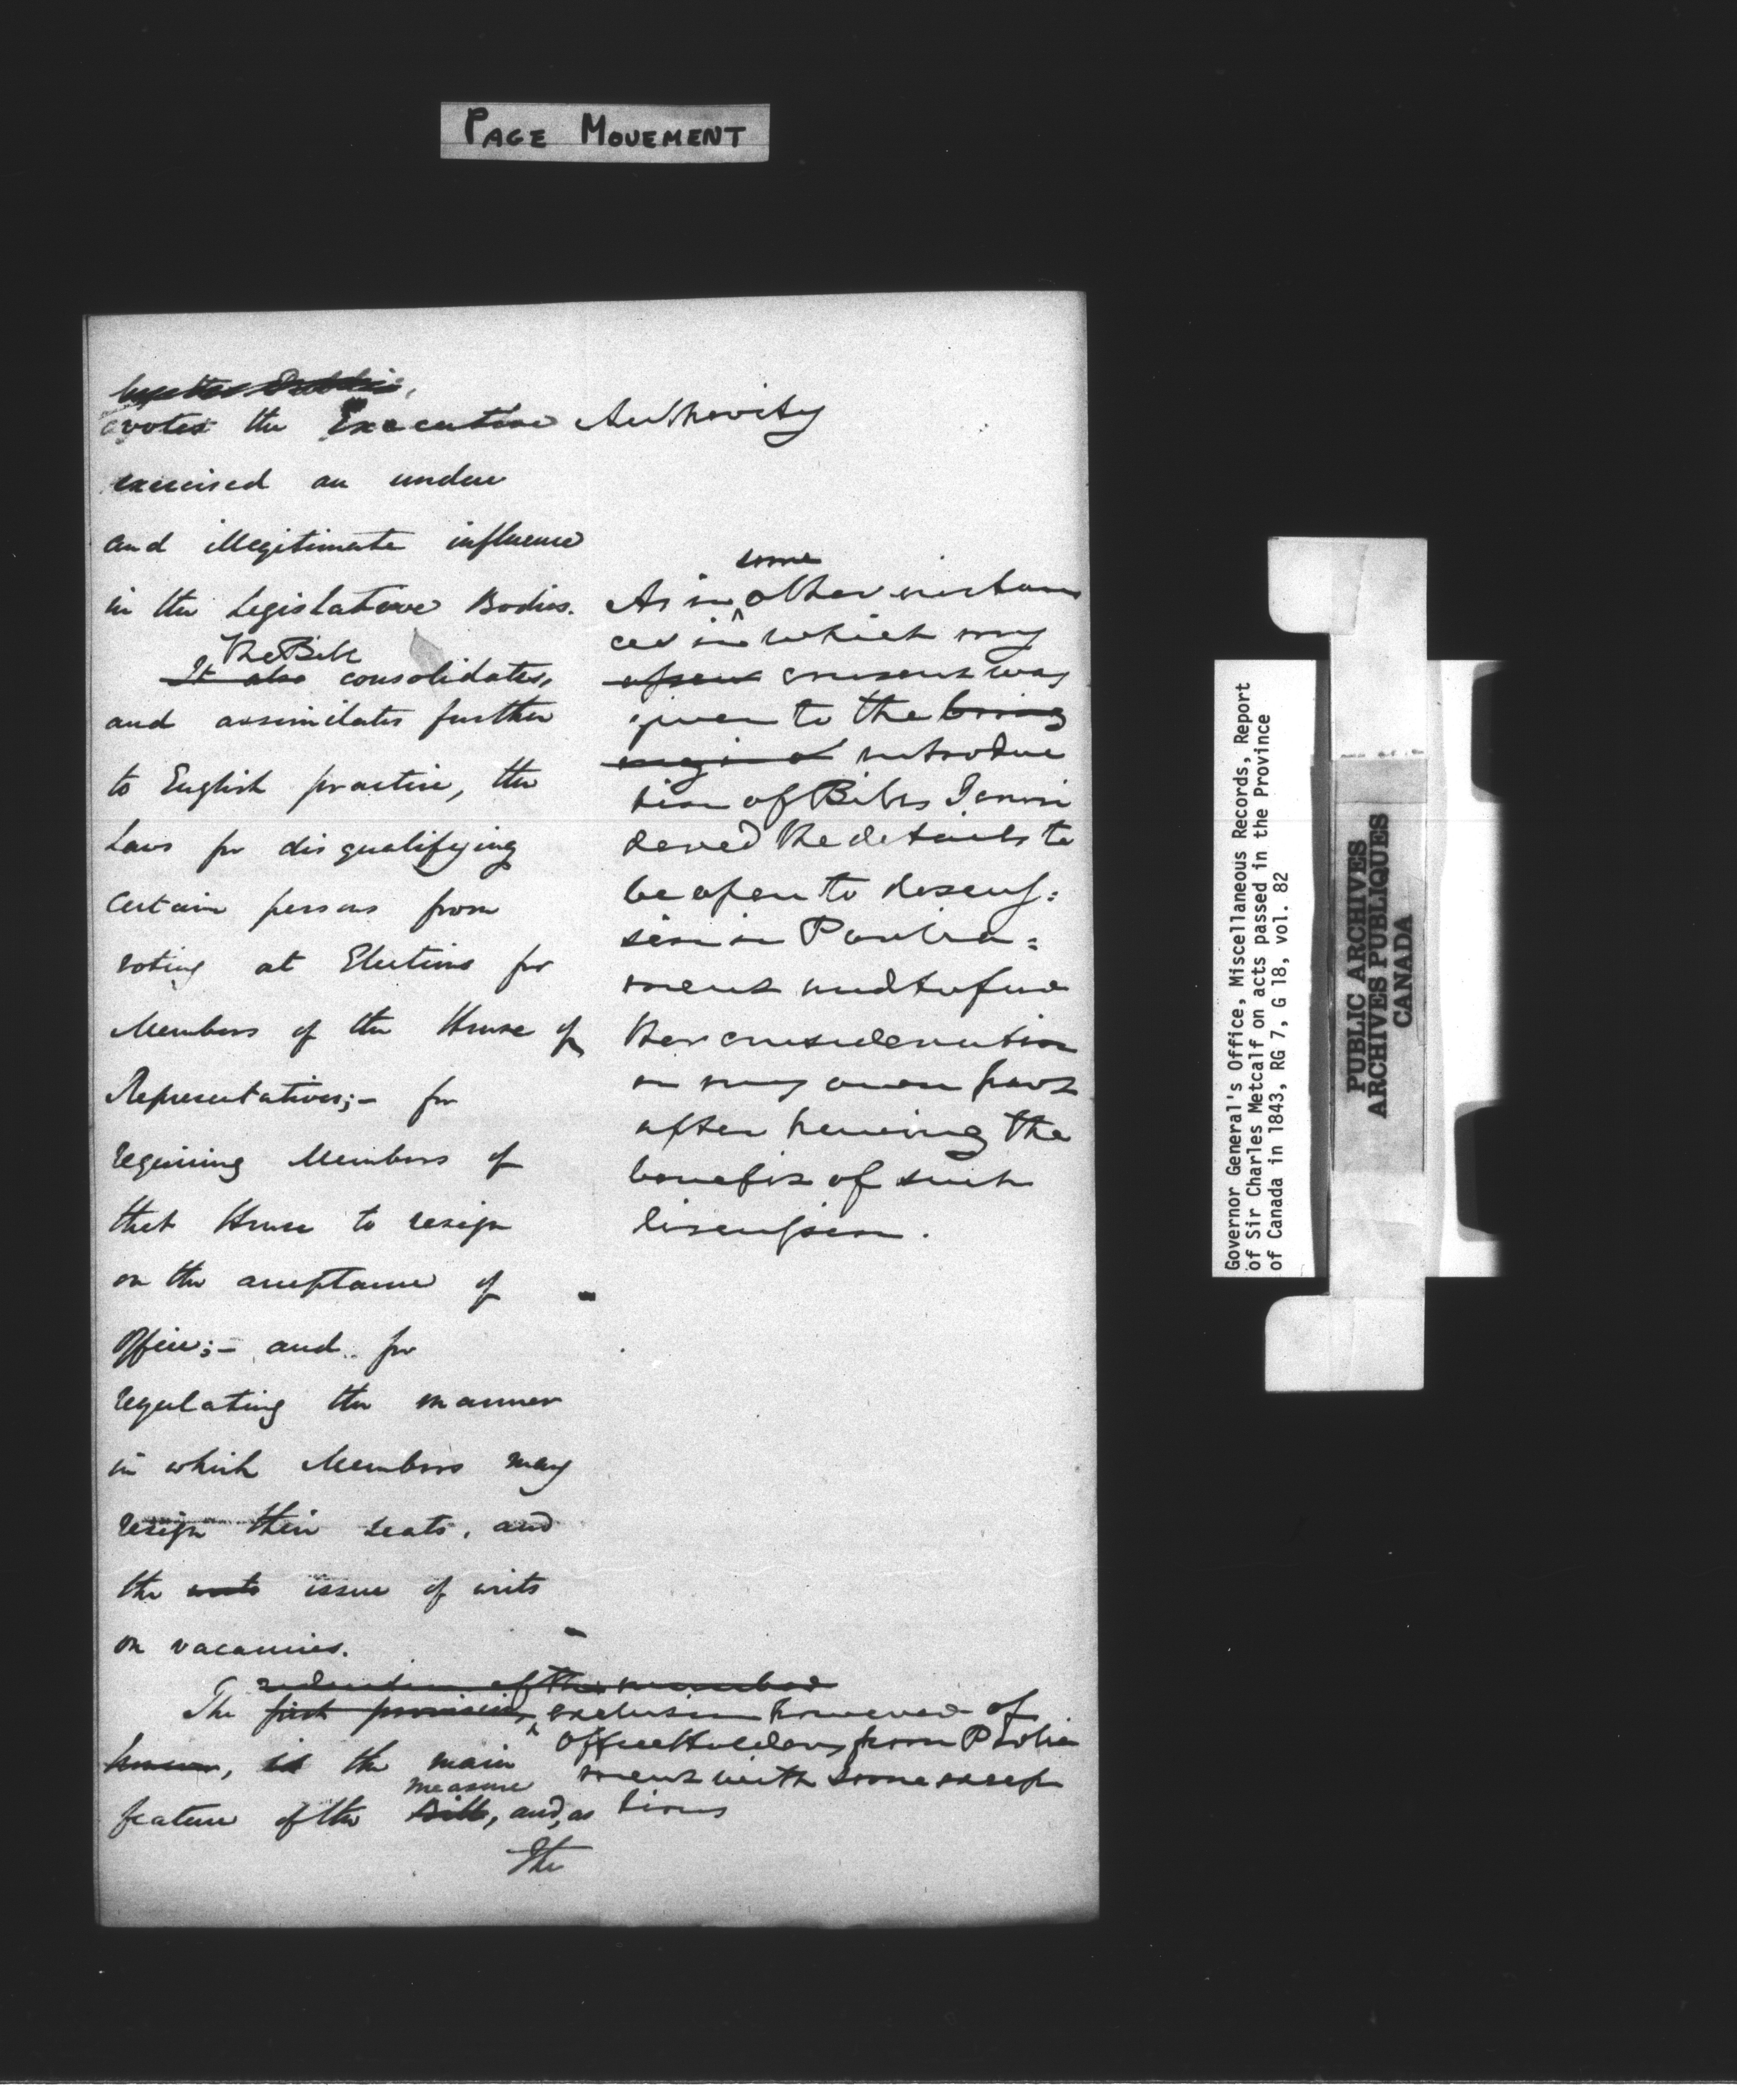 PAGE MOVEMENT
votes the Executive Authority
exercised an undue
and illegitimate influence
in the Legislative Bodies.
The Bill
It also consolidates,
and assimilates further
to English practice, the
Laws for disqualifying
certain persons from
voting at Elections for
Members of the House of
Representatives;- for
requiring Members of
that House to resign
on the acceptance of
Office;- and for
regulating the manner
in which Members may
resign their seats, and
the writs issue of writs
on vacancies.
reduction of the number
The first provision, exclusion however of
Office Holders from Parlia
however, is the main
ment with some excep
measure
feature of the Bill, and, as
tions
The
some
As in other instan
ces in which my
assent consent was
given to the
introduc
tion of Bills I consi
dered the details to
be open to discus:
sion in Parlia:
ment and to fur
ther consideration
on my own part
after having the
benefit of such
discussion.
Governor General's Office, Miscellaneous Records, Report
of Sir Charles Metcalf on acts passed in the Province
of Canada in 1843, RG 7, G 18, vol. 82
PUBLIC ARCHIVES
ARCHIVES PUBLIQUES
CANADA